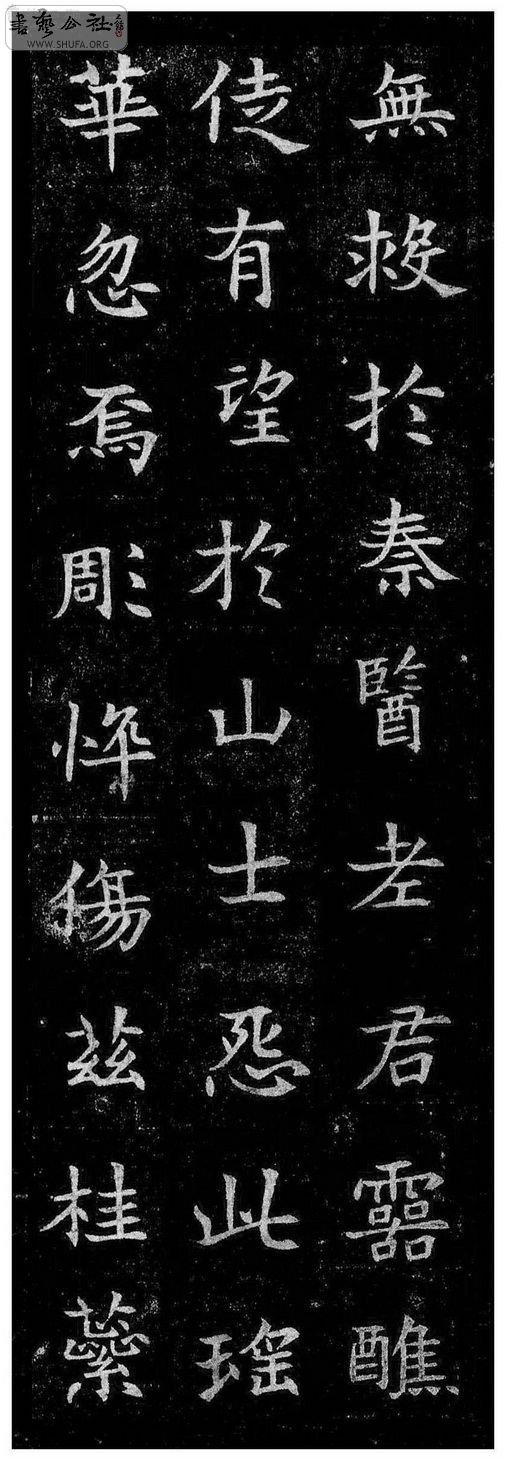 書藝公社
WWW.SHUFA.ORG
無救於秦醫老君靈醮
徒有望於山士怨此瑤
華忽焉彫悴傷茲桂蘂